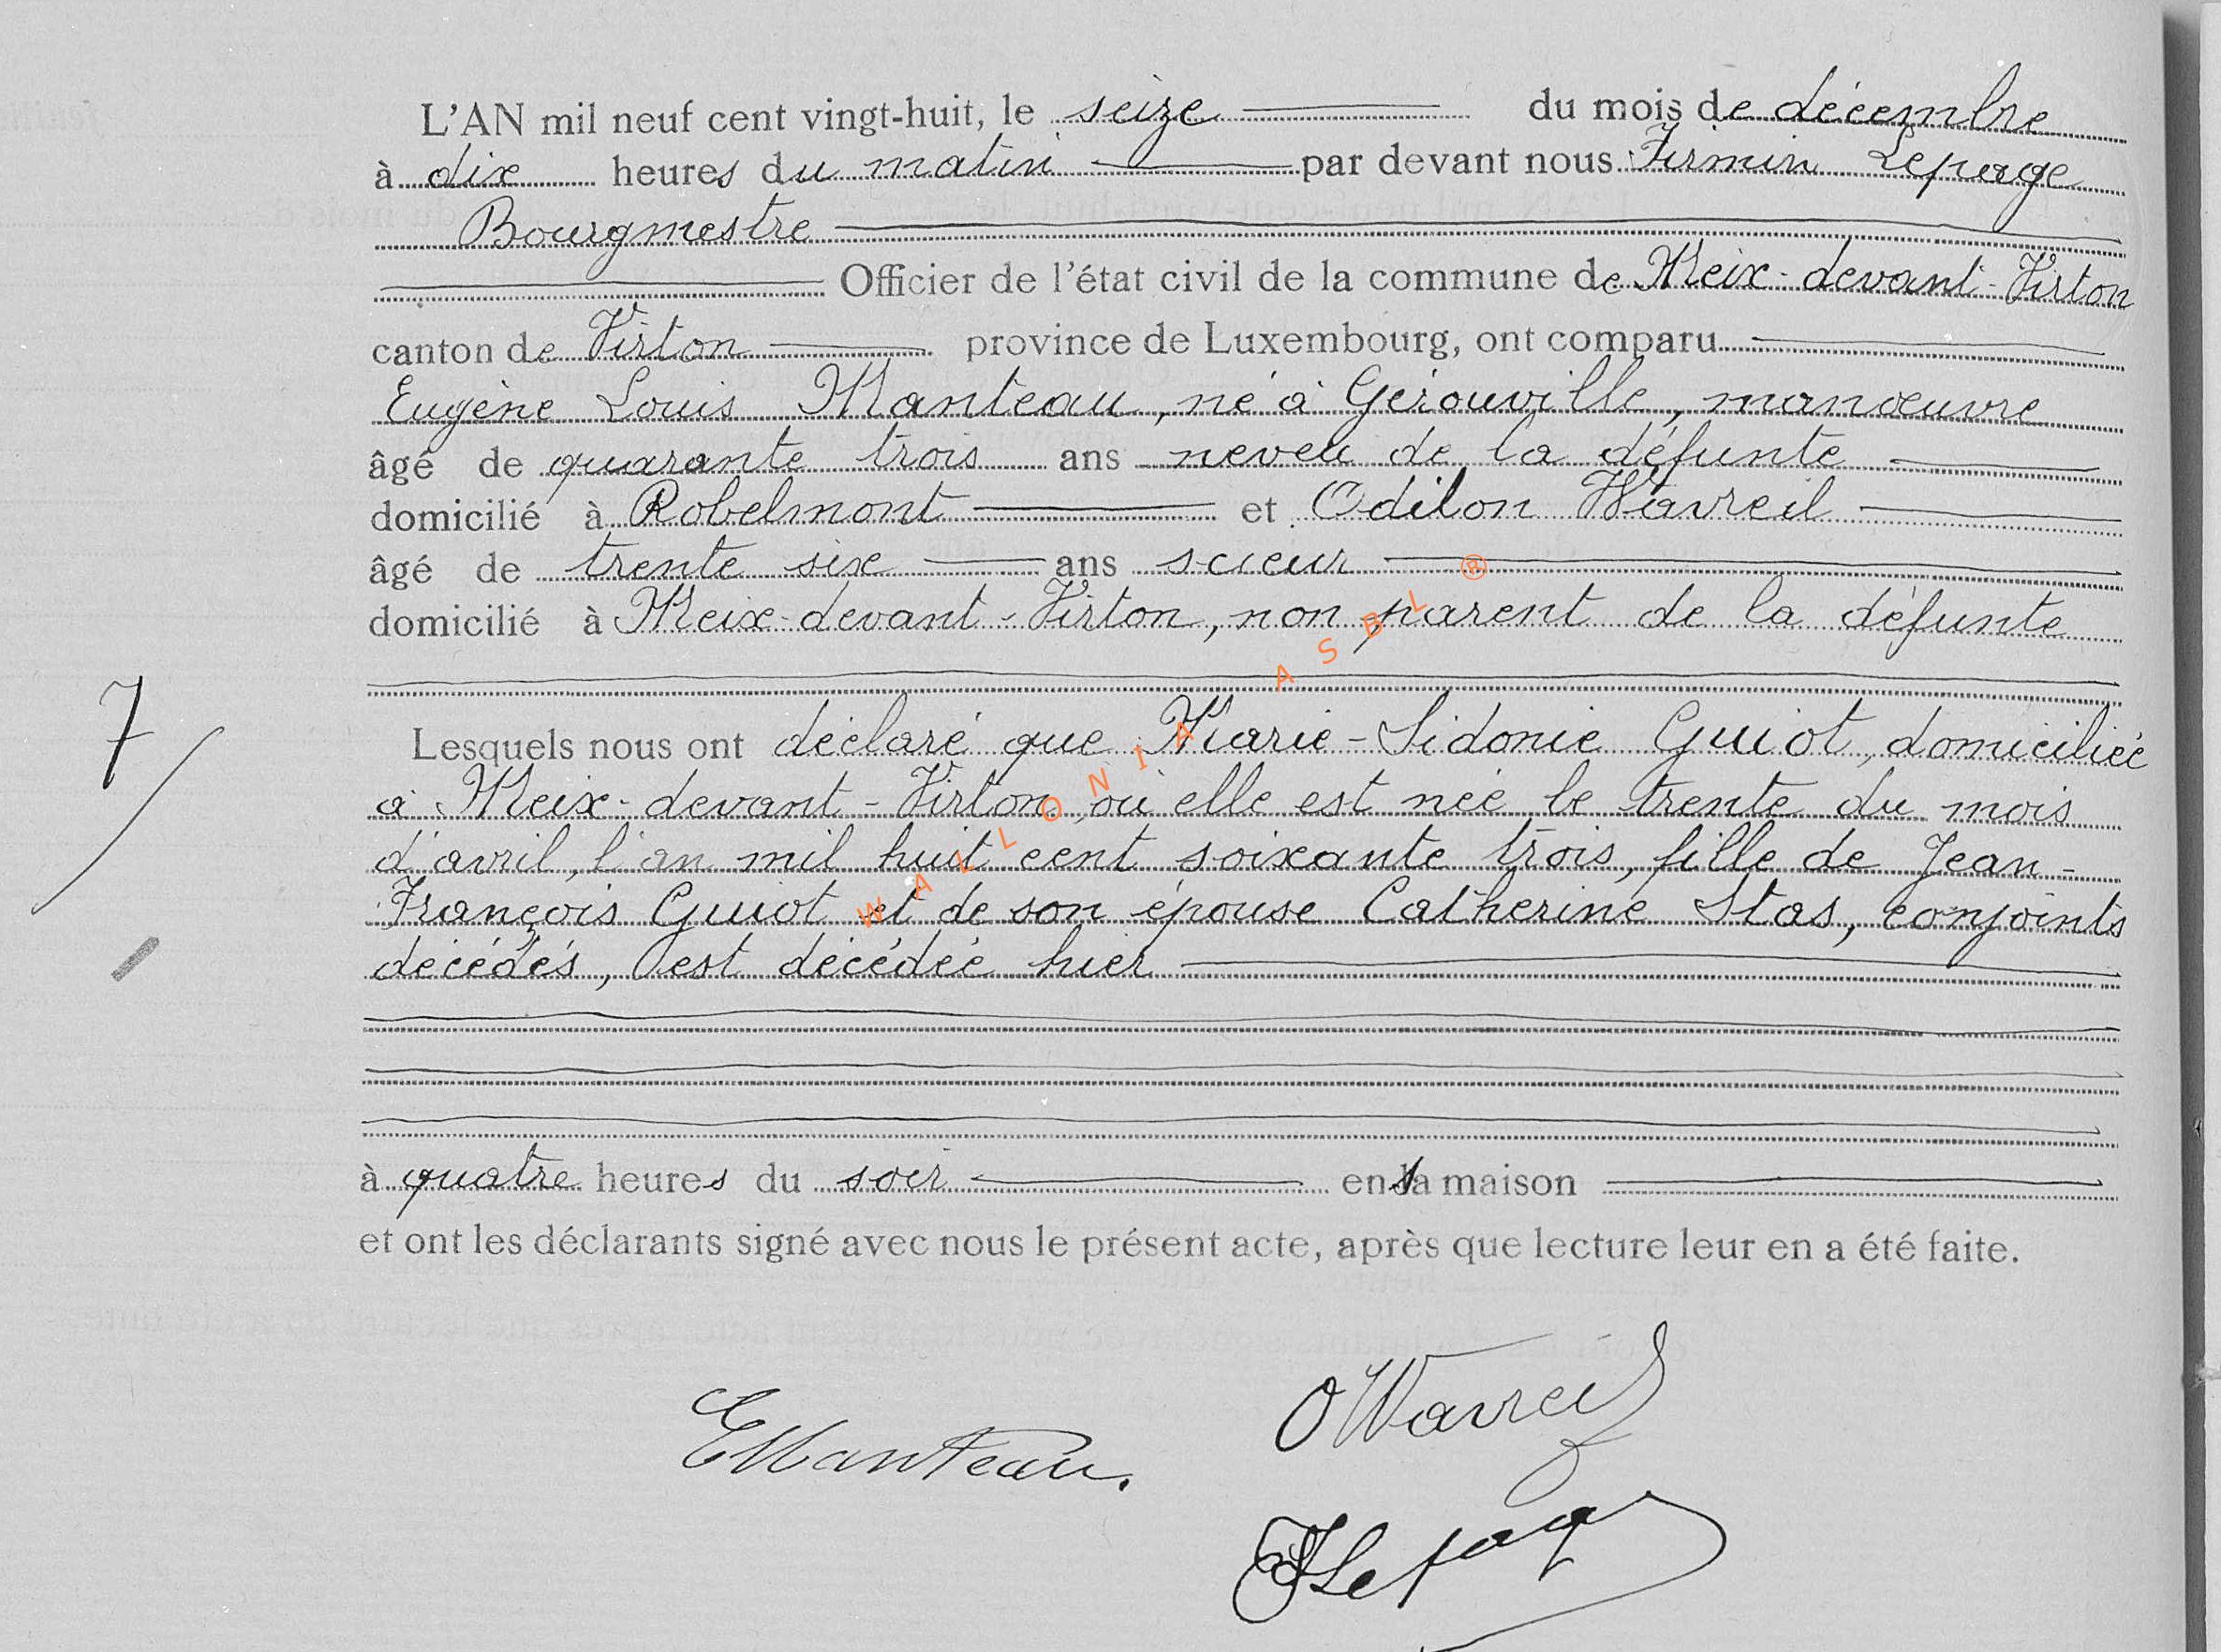 L'AN mil neuf cent vingt-huit, le seize du mois de décembre
à dix heures du matin par devant nous Firmin Lepage
Bourgmestre
Officier de l'état civil de la commune de Meix-devant-Virton
canton de Virton province de Luxembourg, ont comparu
Eugène Louis Manteau, né à Gérouville, manœuvre
âgé de quarante trois ans neveu de la défunte
domicilié à Robelmont et Odilon Wavreil
âgé de trente six ans scieur
domicilié à Meix-devant-Virton, non parent de la défunte
7
Lesquels nous ont déclaré que Marie-Sidonie Guiot, domiciliée
à Meix-devant-Virton, où elle est née le trente du mois
d'avril, l'an mil huit cent soixante trois, fille de Jean-
François Guiot et de son épouse Catherine Stas, conjoints
décédés, est décédée hier
à quatre heures du soir en sa maison
et ont les déclarants signé avec nous le présent acte, après que lecture leur en a été faite.
OWavreil
EManteau.
FLepage
WALLONIA ASBL ®